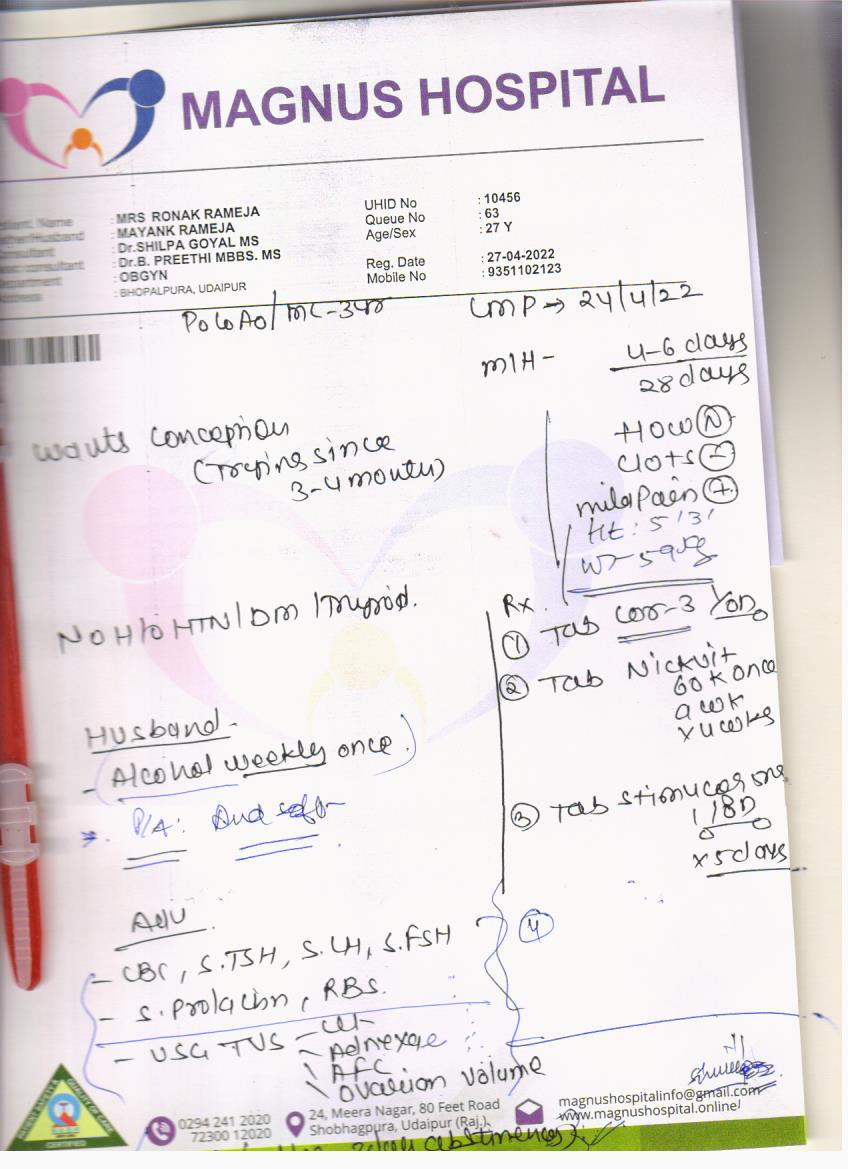 MAGNUS HOSPITAL
: MRS RONAK RAMEJA
: MAYANK RAMEJA
: Dr.SHILPA GOYAL MS
: Dr.B. PREETHI MBBS. MS
: OBGYN
: BHOPALPURA, UDAIPUR
UHID No : 10456
Queue No : 63
Age/Sex : 27 Y
Reg. Date : 27-04-2022
Mobile No : 9351102123
P0L0A0/ LMP → 24/4/22
M/H - 4-6 days
28 days
Flow N
Clots -
mild Pain +
Ht: 5'3'
Wt-59kg
wants conception
(Trying since
3-4 month)
N0 H/O HTN/DM/Thyroid.
Husband -
- Alcohol weekly once.
P/A: soft
Adv
- CBC, S.TSH, S.LH, S.FSH
- S. Prolactin, RBS.
- USG TVS - 
- Adnexae
\ AFC
\ Ovarian volume
Rx.
① Tab -3 /OD
② Tab 
60K once
a wk
x 4wks
③ Tab 
1/BD
x 5days
④
CERTIFIED
0294 241 2020
72300 12020
24, Meera Nagar, 80 Feet Road
Shobhagpura, Udaipur (Raj.)
magnushospitalinfo@gmail.com
www.magnushospital.online